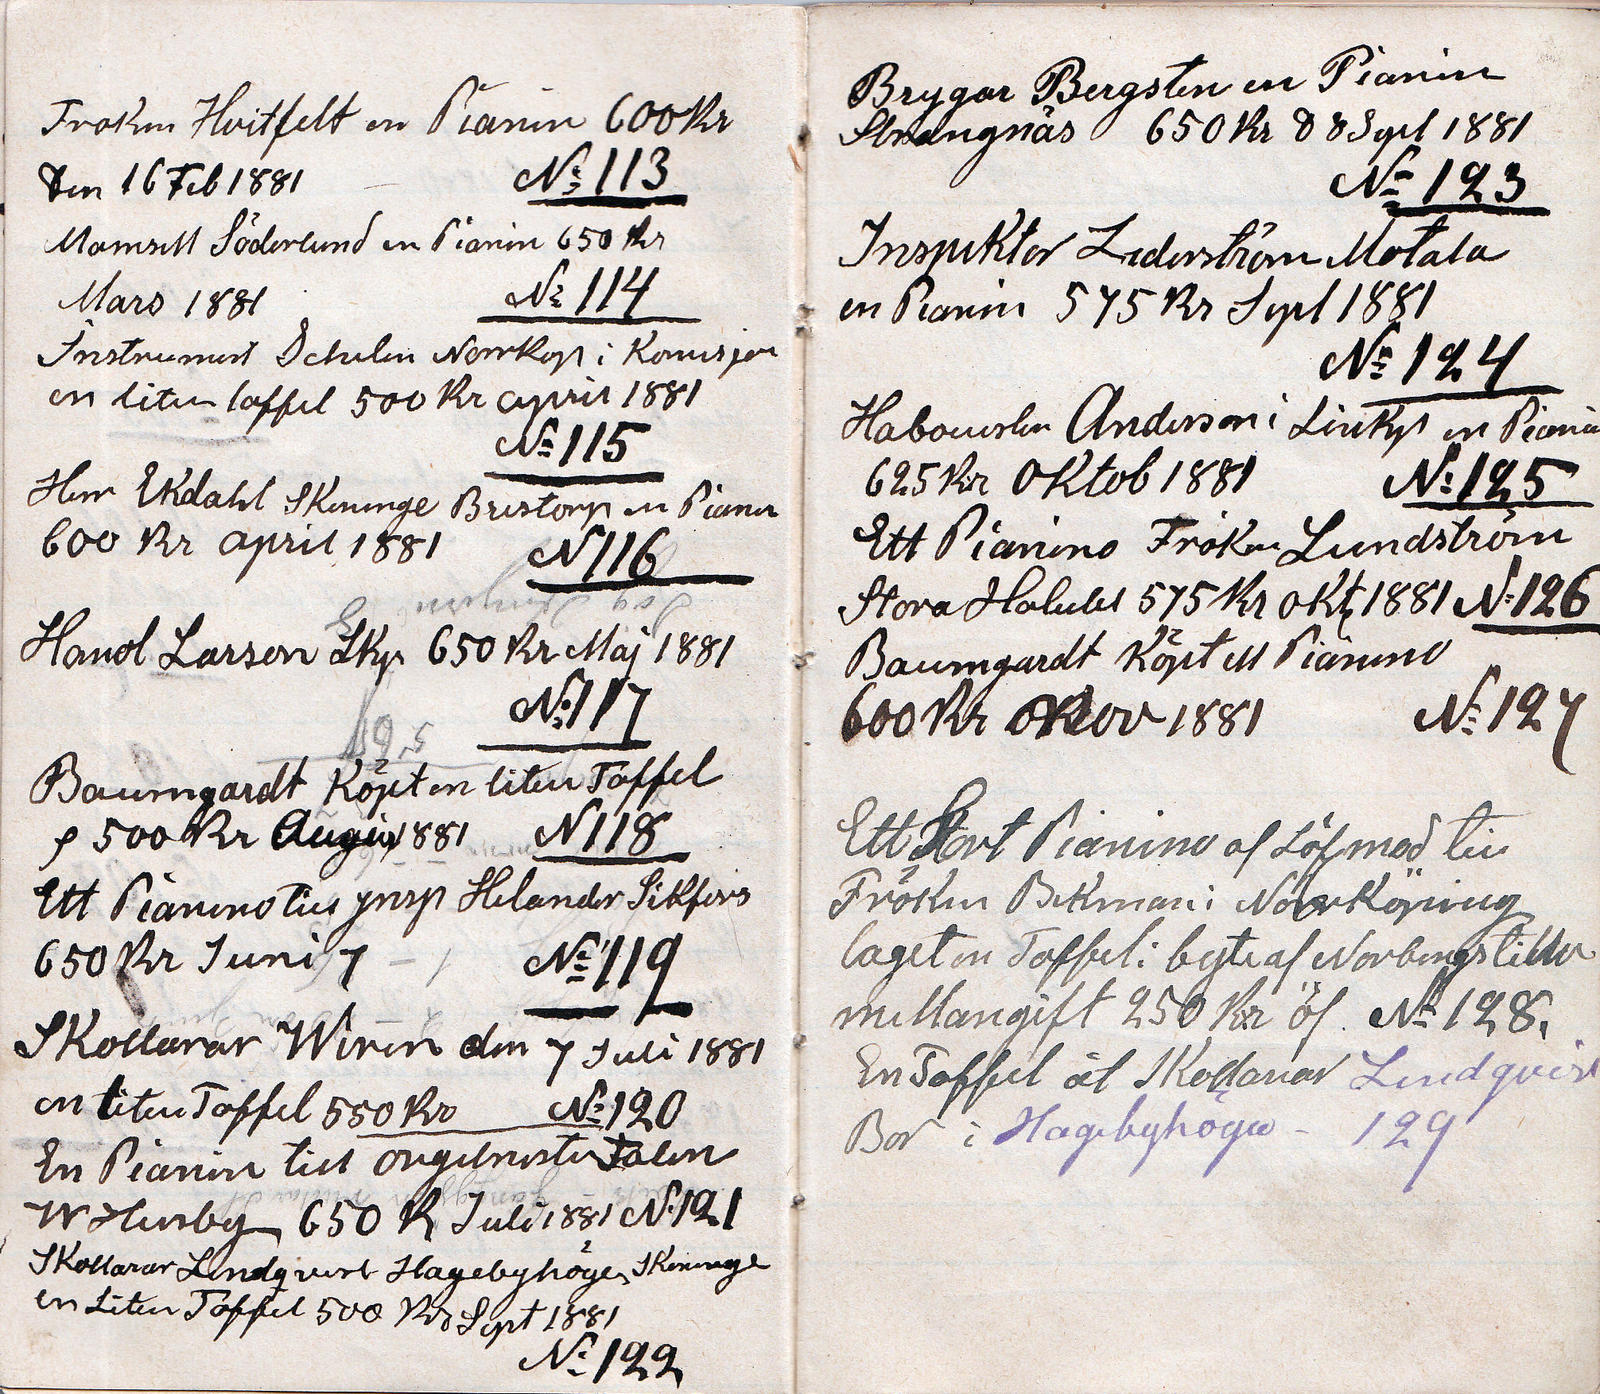 Fröken Hvitfelt en Pianin 600 Kr
Den 16 Feb 1881 No 113
Mamsell Söderlund en Pianin 650 Kr
Mars 1881 No 114
Instrument Norrkp i Komisjon
en liten taffel 500 Kr april 1881
No 115
Herr Ekdahl Skeninge Brestorp en Pianin
600 Kr april 1881 N 116
Handl Larson Lkp 650 Kr Maj 1881
No 117
Baumgardt Köpt en liten Taffel
p 500 Kr Augu 1881 N 118
Ett Pianino till ynsp Helander
650 Kr Juni 7 – 1 No 119
Skollärar Wiren den 7 Juli 1881
en liten Taffel 550 Kr No 120
En Pianin till orgelnisten Talen
W Husby 650 K Juli 1881 No 121
Skollärar Lindqvist Hagebyhöga, Skeninge
en Liten Taffel 500 Kr Sept 1881
No 122
Brygar Bergsten en Pianin
Strängnäs 650 Kr d 8 Sept 1881
No 123
Inspektor Lederström Motala
en Pianin 575 Kr Sept 1881
No 124
Anderson i Linkp en Pianin
625 Kr Oktob 1881 No 125
Ett Pianino Fröken Lundström
Stora 575 Kr Okt 1881 No 126
Baumgardt Köpt ett Pianino
600 Kr Nov 1881 No 127
Ett Stort Pianino af Löfmad till
Fröken Bekman i Norrköping
taget en Taffel i byte af
mellangift 250 Kr öf. No 128.
En Taffel åt Skollärar Lindqvist
Bor i Hagebyhöga – 129